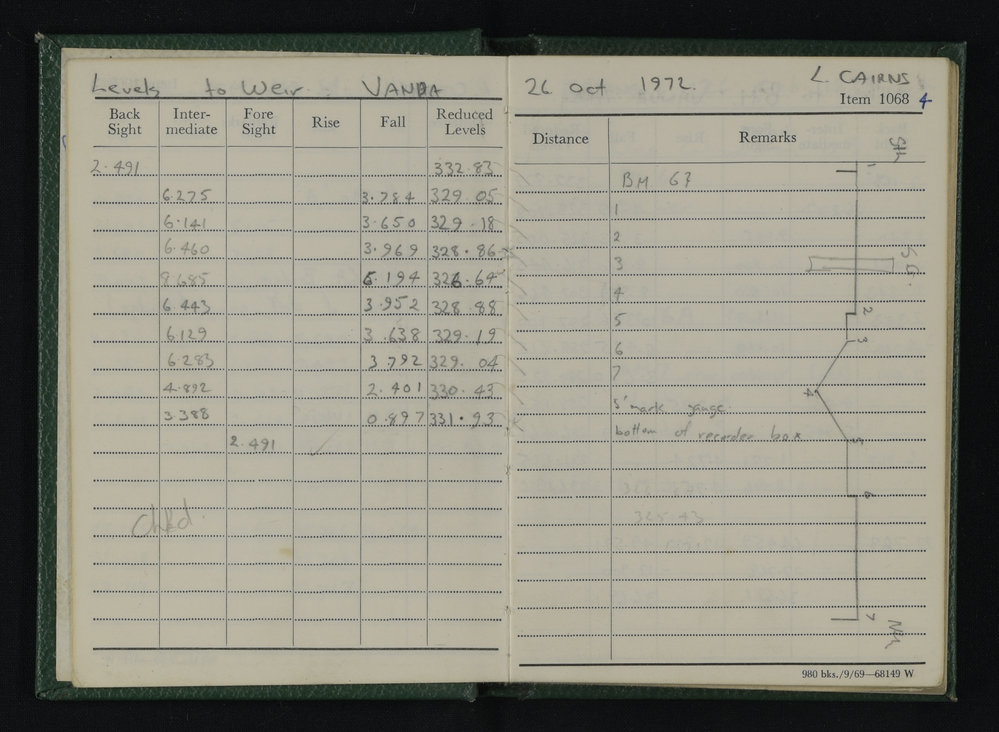 Levels to Weir. VANDA
Back Sight Inter-mediate Fore Sight Rise Fall Reduced Levels
2.491 332.83
6.275 3.784 329.05
6.141 3.650 329.18
6.460 3.969 328.86
8.685 6.194 326.64
6.443 3.952 328.88
6.129 3.638 329.19
6.283 3.792 329.04
4.892 2.401 330.43
3.388 0.897 331.93
2.491
Chkd.
26 Oct 1972. L. CAIRNS
Item 1068 4
Distance Remarks
BM 67
1
2
3
4
5
6
7
5' mark gauge.
bottom of recorder box
325.43
Sth
1
S.G.
2
3
4
5
6
7
Nth
980 bks./9/69—68149 W